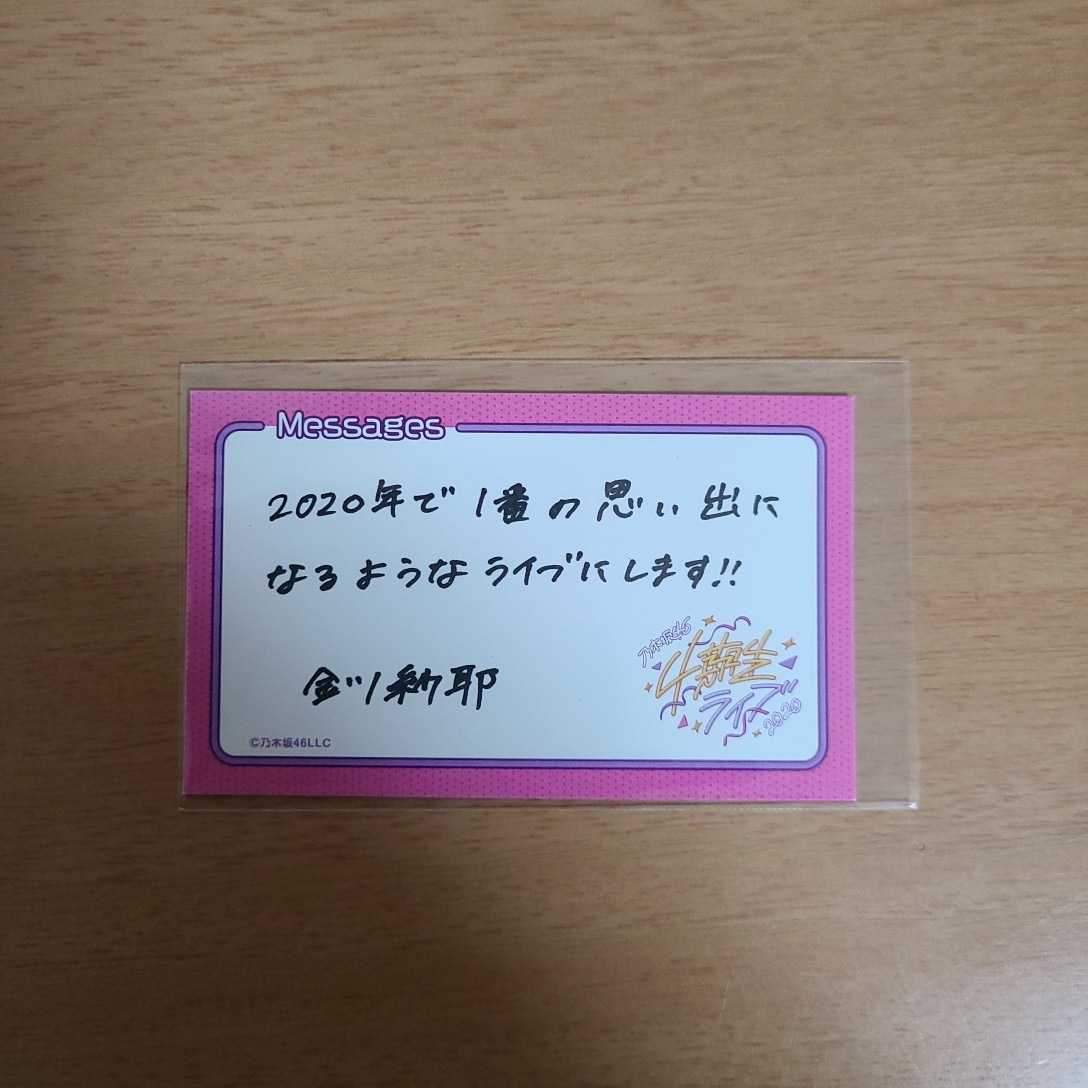 Messages
2020年で1番の思い出に
なるようなライブにします!!
金川紗耶
乃木坂46
4期生
ライブ
2020
©乃木坂46LLC